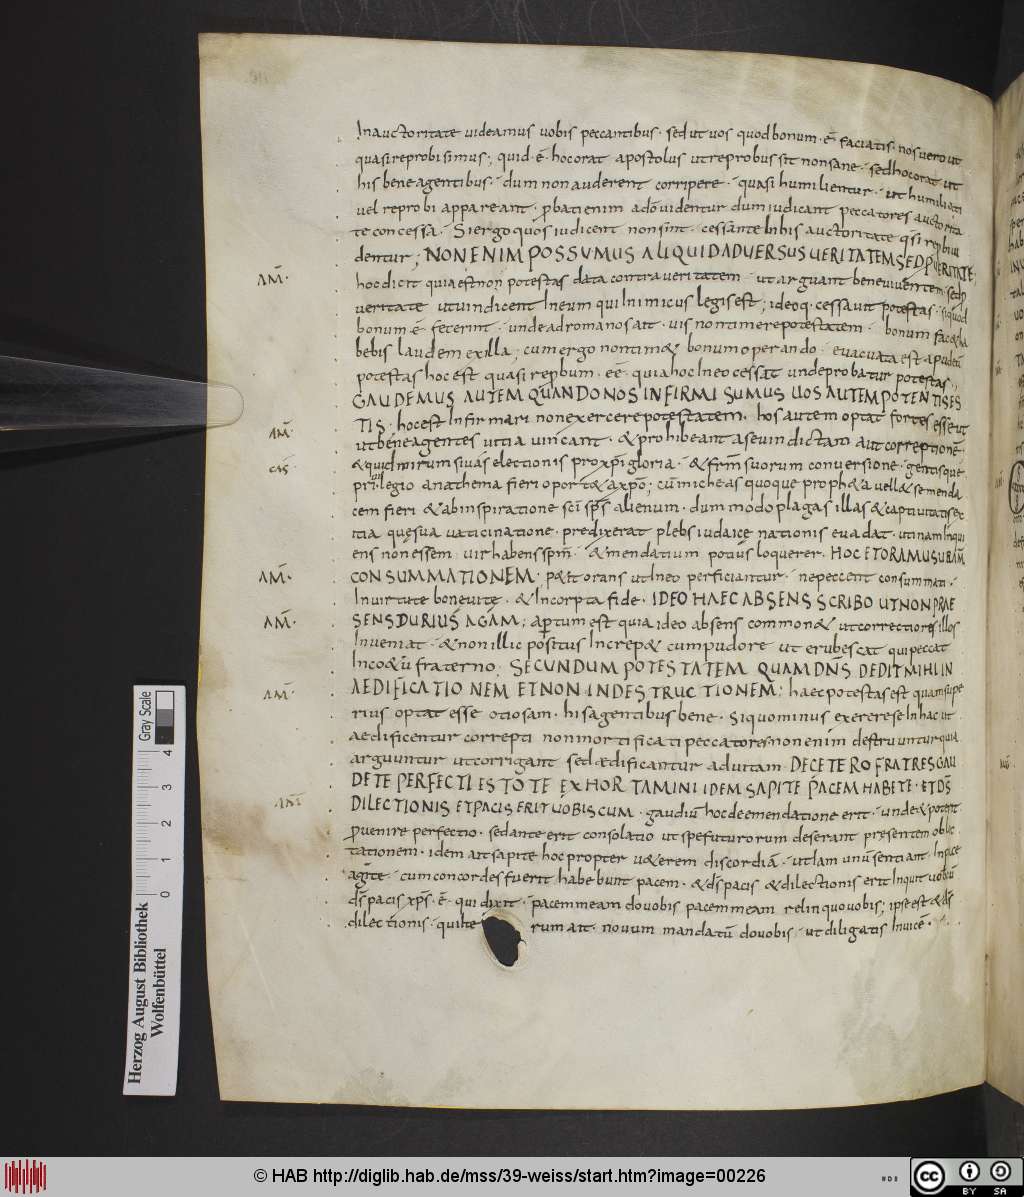 In auctoritate uideamus uobis peccantibus · sed ut uos quod bonum · ē faciatis · nos uero ut
quasi reprobi simus ; quid · ē · hoc orat apostolus ut reprobus sit non sane · sed hoc orat ut
his bene agentibus · dum non auderent corripere · quasi humilientur · ut humiliati
uel reprobi appareant · ꝓbati enim adō uidentur dum iudicant peccatores auctorita
te concessa · Si ergo quos iudicent non sint · cessante In his auctoritate qͣsi repbi ui
dentur ; NON ENIM POSSVMUS ALIQUID ADUERSUS UERITATEM SED P UERITATE
AM̄ · hoc dicit quia est non potestas data contra ueritatem · ut arguant bene uiuentem · sed p
ueritate ut uindicent In eum qui Inimicus legis est ; ideoq · cessauit potestas · si quod
bonum · ē · fecerint · unde ad romanos ait · uis non timere potestatem · bonum fac & ha
bebis laudem ex illa ; cum ergo non tim& bonum operando · euacuata est apud eū
potestas hoc est quasi repbum · eē · quia hoc In eo cessat unde probatur potestas ·,
GAUDEMUS AUTEM QUANDO NOS INFIRMI SUMUS UOS AUTEM POTENTIS ES
TIS · hoc est Infirmari non exercere potestatem · hos autem optat fortes esse ut
AM̄ · ut bene agentes uitia uincant · & prohibeant a se uindictam aut correptionē
cas · & quid mirum si uas electionis pro xp̄i gloria · & frm̄ suorum conuersione · gentisque
priuilegio anathema fieri oport& a xp̄o ; cū micheas quoque proph&a uell& se menda
cem fieri & ab inspiratione sc̄i sp̄s alienum · dum modo plagas illas & captiuitatis ex
itia quę sua uaticinatione · predixerat plebs iudaice nationis euadat · utinam Inqui
ens non essem uir habens spm̄ · & mendatium potius loquerer · HOC ET ORAMUS UR̄AM
AM̄ · CONSUMMATIONEM · p&it orans ut In eo perficiantur · ne peccent consummati ·
In uirtute bone uite · & Incorpta fide · IDEO HAEC ABSENS SCRIBO UT NON PRAE
AM̄ · SENS DURIUS AGAM ; apertum est quia ideo absens common& ut correctiores illos
Inueniat · & non illic positus Increp& cum pudore ut erubescat qui peccat
In coetu fraterno · SECUNDUM POTESTATEM QUAM DN̄S DEDIT MIHI IN
AM̄ · AEDIFICATIONEM ET NON IN DESTRUCTIONEM ; haec potestas est quam supe
rius optat esse otiosam · his agentibus bene · Si quominus exercrese In hac ut
aedificentur correpti non mortificati peccatores non enim destruuntur quia
arguuntur ut corrigant sed ædificantur ad uitam · DE CETERO FRATRES GAU
DETE PERFECTI ESTOTE EXHORTAMINI IDEM SAPITE PACEM HABETE · ET DS̄
AM̄ · DILECTIONIS ET PACIS ERIT UOBISCUM · gaudiū hoc de emendatione erit · unde & potent
ꝓuenire perfectio · sed ante erit consolatio ut spe futurorum deserant presentem oblec
tationem · idem ait sapite hoc propter u&erem discordiā · ut Iam unū sentiant · In pace
agite · cum concordes fuerit habebunt pacem · & ds̄ pacis & dilectionis erit Inquit uobiscū
ds̄ pacis xp̄s · ē · qui dixit · pacem meam do uobis pacem meam relinquo uobis ; ipse est & ds̄
dilectionis · qui ite rum ait · nouum mandatū do uobis · ut diligatis Inuicē ·
Herzog August Bibliothek
Wolfenbüttel
0 1 2 3 4
Gray Scale
© HAB http://diglib.hab.de/mss/39-weiss/start.htm?image=00226
cc BY SA